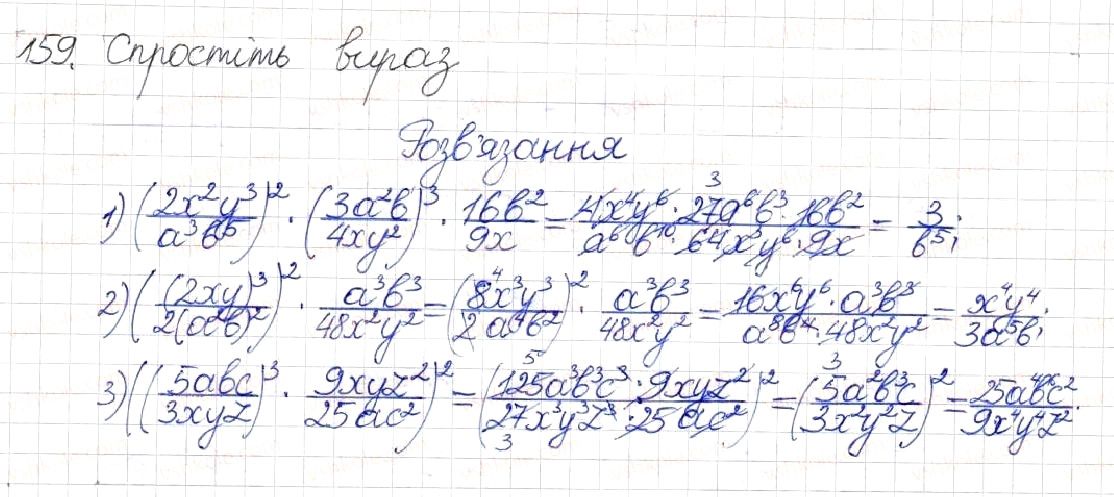 159. Спростіть вираз
Розв'язання
1) (2x²y³/a³b⁵)² · (3a²b/4xy²)³ · 16b²/9x = 4x⁴y⁶ · 27a⁶b³ · 16b²/a⁶b¹⁰ · 64x³y⁶ · 9x = 3/b⁵;
2) ((2xy)³/2(a²b)²)² · a³b³/48x²y² = (8x³y³/2a⁴b²)² · a³b³/48x²y² = 16x⁶y⁶ · a³b³/a⁸b⁴ · 48x²y² = x⁴y⁴/3a⁵b;
3) ((5abc/3xyz)³ · 9xyz²/25ac²)² = (125a³b³c³ · 9xyz²/27x³y³z³ · 25ac²)² = (5a²b³c/3x²y²z)² = 25a⁴b⁶c²/9x⁴y⁴z².